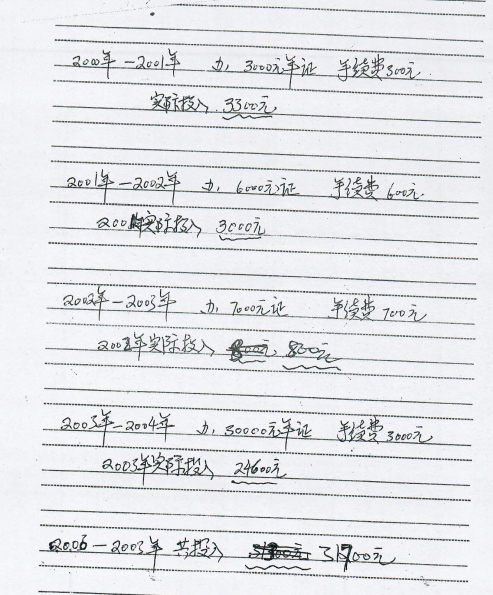 2000年-2001年 办,3000元年证 手续费300元
实际投入 3300元
2001年-2002年 办,6000元证 手续费600元
2001年实际投入 3000元
2002年-2003年 办,7000元证 手续费700元
2002年实际投入 800元
2003年-2004年 办,30000元年证 手续费3000元
2003年实际投入 24600元
2000-2003年 共投入 31700元